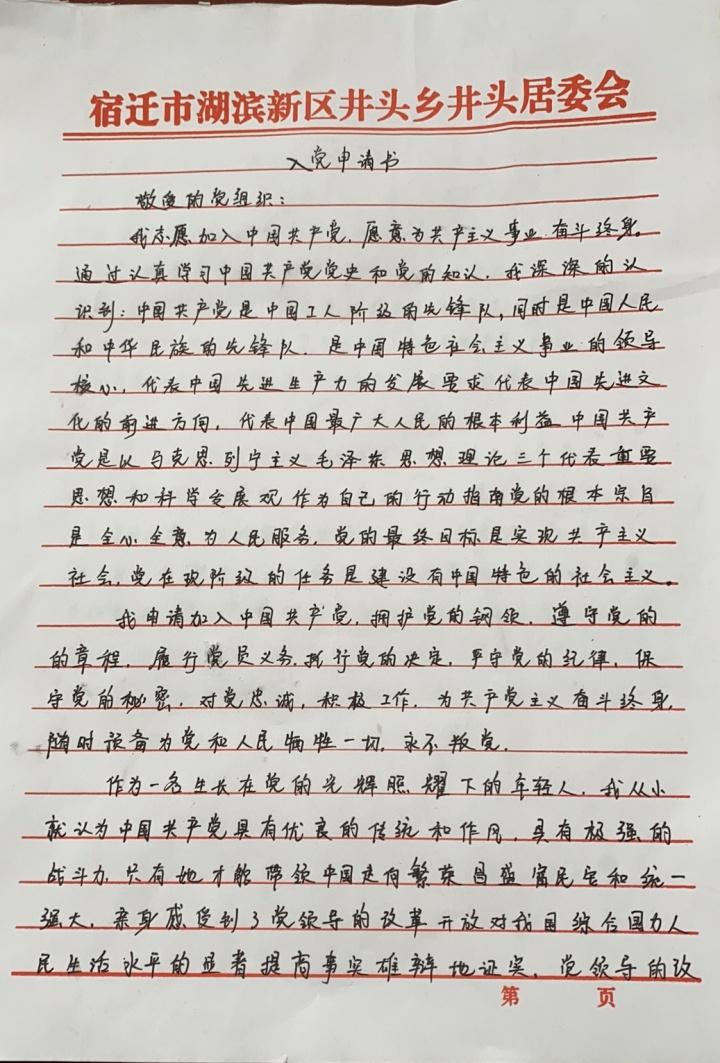 宿迁市湖滨新区井头乡井头居委会
入党申请书
敬爱的党组织：
我志愿加入中国共产党，愿意为共产主义事业奋斗终身。
通过认真学习中国共产党党史和党的知认，我深深的认
识到：中国共产党是中国工人阶级的先锋队，同时是中国人民
和中华民族的先锋队，是中国特色社会主义事业的领导
核心，代表中国先进生产力的发展要求代表中国先进文
化的前进方向，代表中国最广大人民的根本利益中国共产
党是以马克思列宁主义毛泽东思想理论三个代表重要
思想和科学发展观作为自己的行动指南党的根本宗旨
是全心全意为人民服务，党的最终目标是实现共产主义
社会，党在现阶级的任务是建设有中国特色的社会主义。
我申请加入中国共产党，拥护党的钢领，遵守党的
的章程，履行党员义务，执行党的决定，严守党的纪律，保
守党的秘密，对党忠诚，积极工作，为共产党主义奋斗终身，
随时预备为党和人民牺牲一切，永不叛党，
作为一名生长在党的光辉照耀下的年轻人，我从小
就认为中国共产党具有优良的传统和作风，具有极强的
战斗力只有她才能带领中国走向繁荣昌盛富民宅和统一
强大，亲身感受到了党领导的改革开放对我国综合国力人
民生活水平的显著提高事实雄辩地证实，党领导的改
第 页